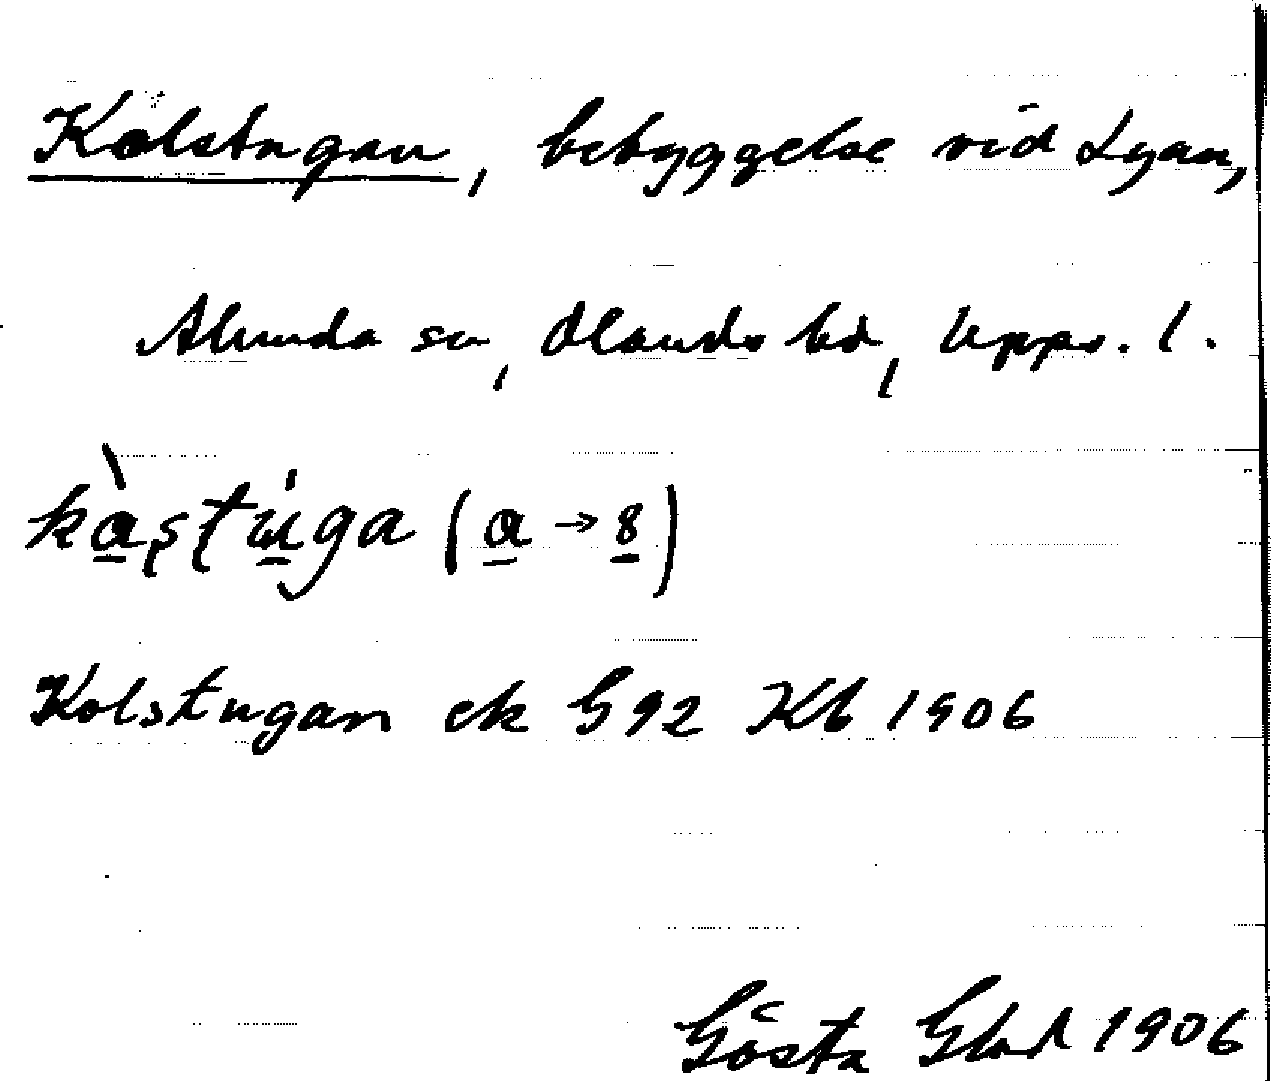 Kolstugan, bebyggelse vid Lyan,
Alunda sn, Olands hd, Upps. l.
kàştùga (a → 8)
Kolstugan ek G 92 Kb 1906
Gösta 1906